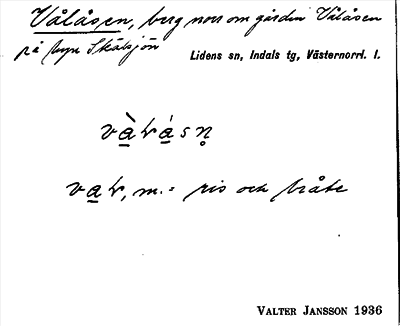 Vålåsen, berg norr om gården Vålåsen
på byn Skälsjön Lidens sn, Indals tg, Västernorrl. l.
và̱ɫá̱sn̥
va̱ɫ, m. = ris och bråte
VALTER JANSSON 1936